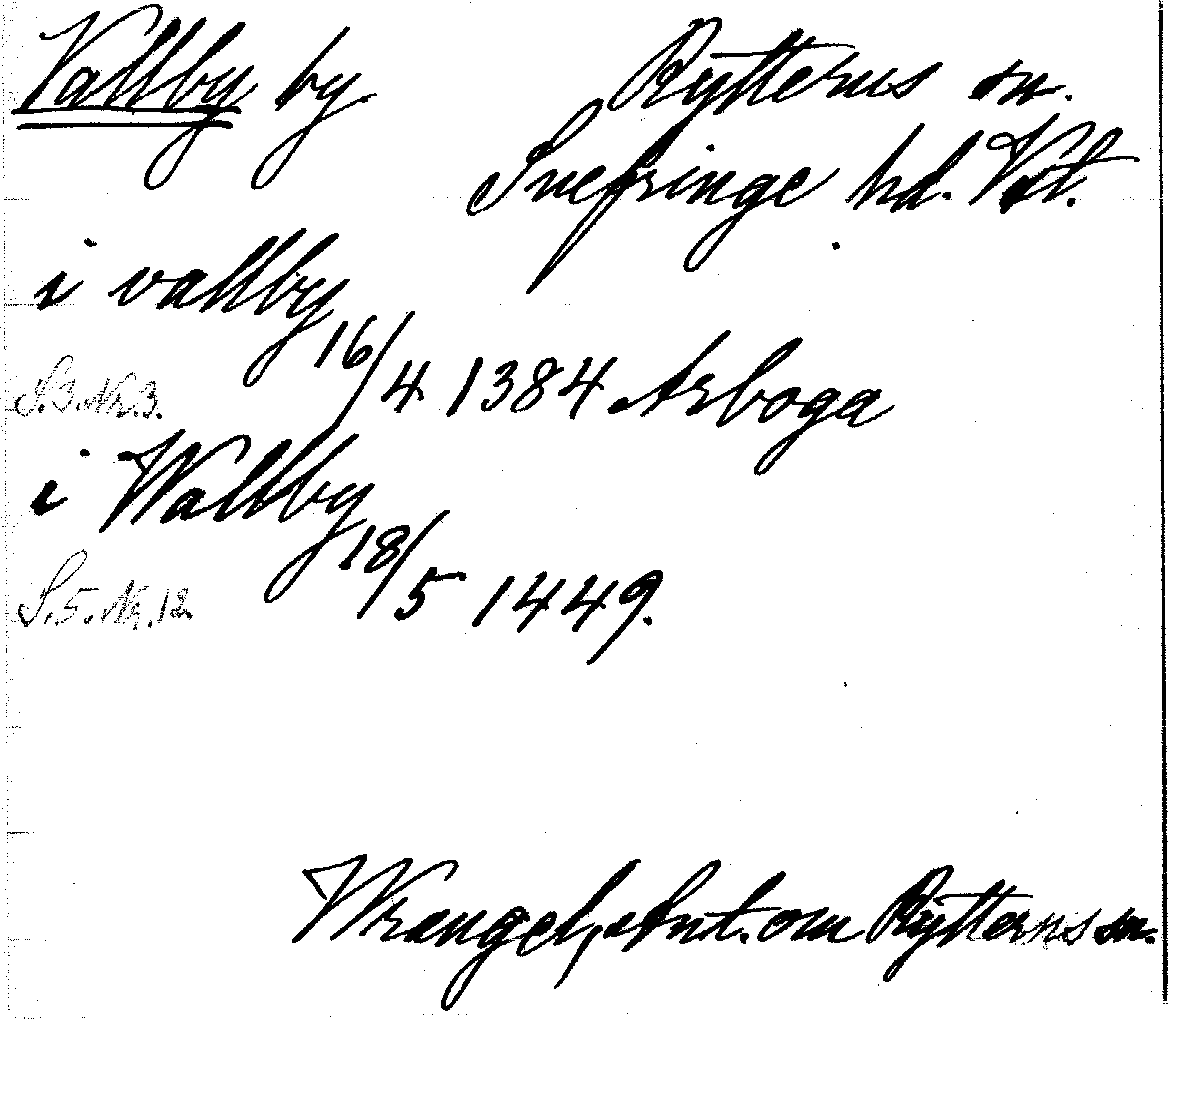 Vallby by. Rytterns sn.
Snefringe hd. Vstl.
i vallby 16/4 1384 Arboga
S.3.Nr.3.
i Wallby 18/5 1449.
S.5.Nr.12
Wrangel, Ant. om Rytterns sn.